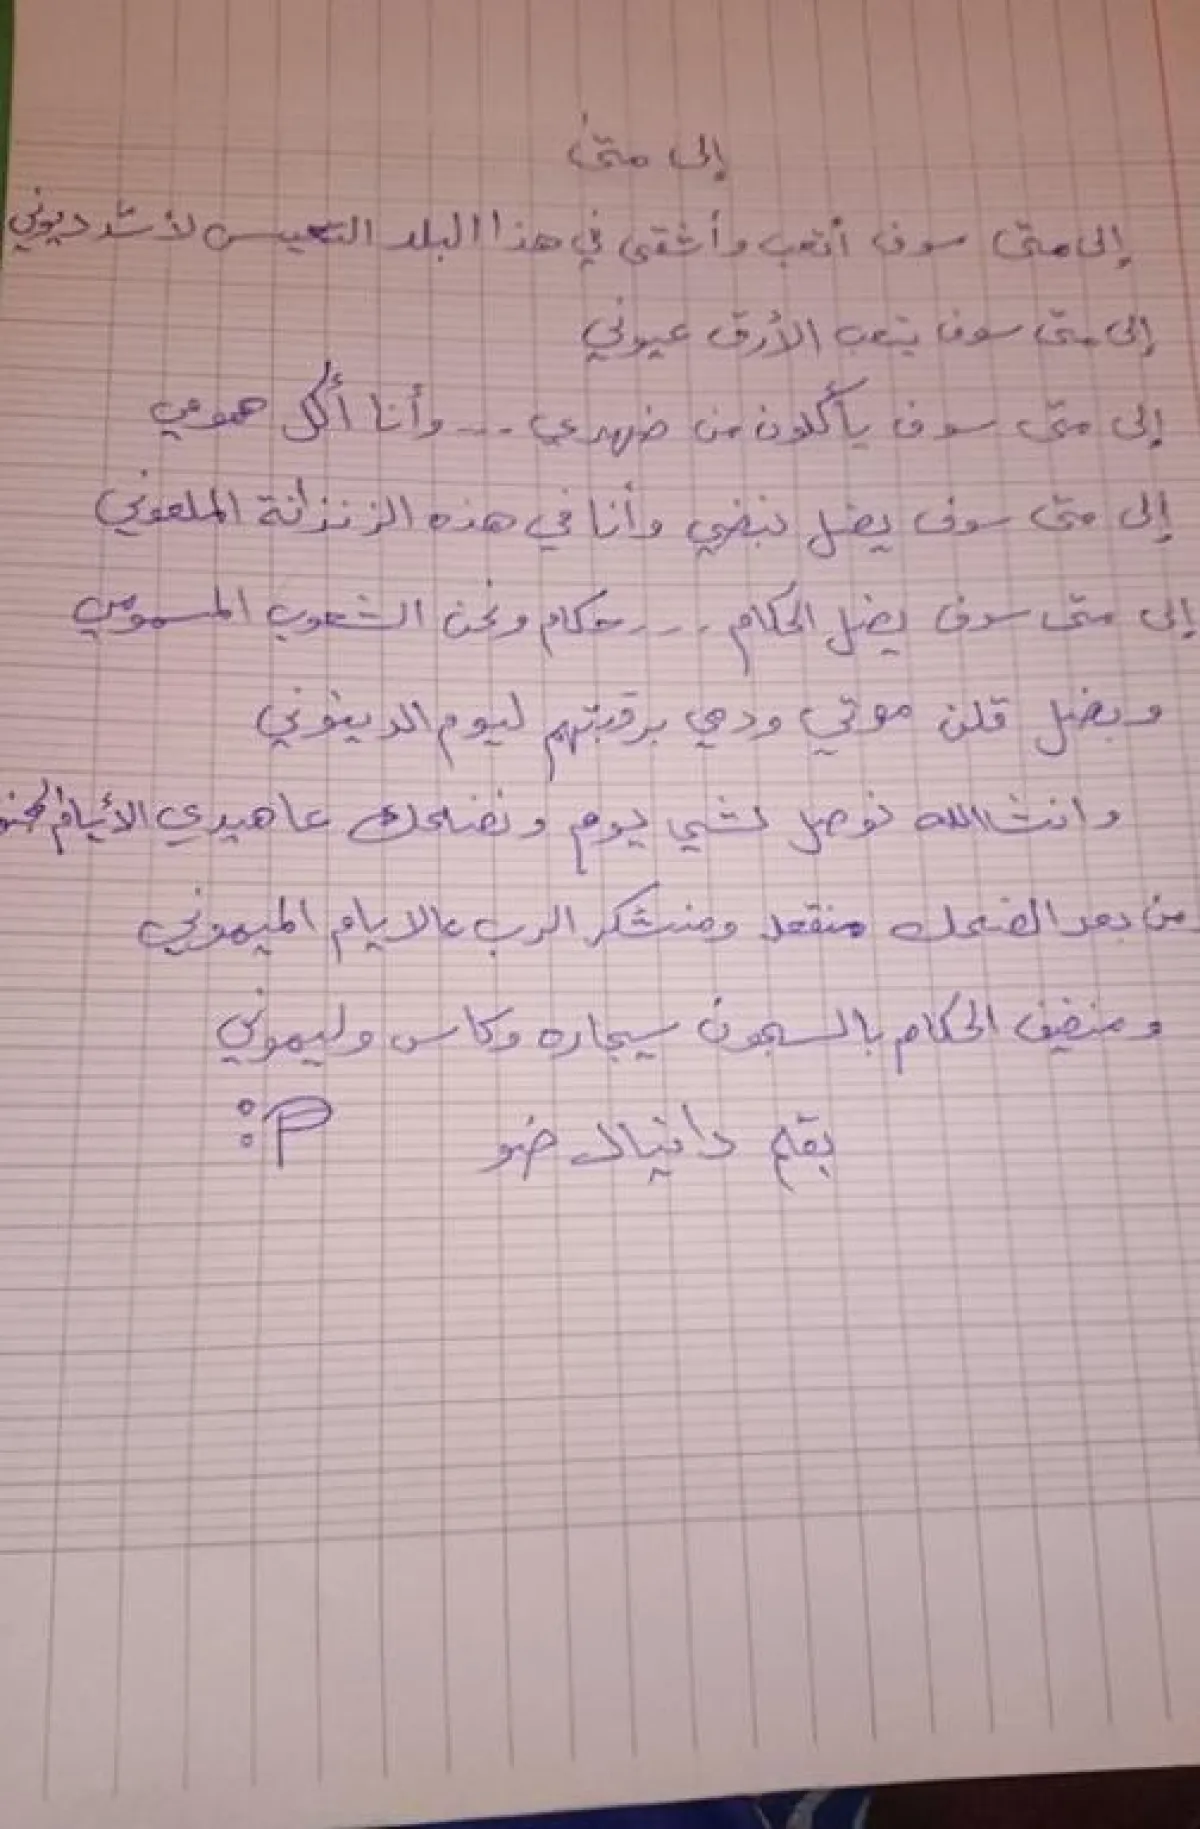 إلى متى
إلى متى سوف أتعب وأشقى في هذا البلد التعيس لأسد ديوني
إلى متى سوف يتعب الأرق عيوني
إلى متى سوف يأكلون من ضهري ... وأنا أكل همومي
إلى متى سوف يضل نبضي وأنا في هذه الزنزانة الملعوني
إلى متى سوف يضل الحكام .... حكام ونحن الشعوب المسمومي
وبضل قلن موتي ودمي برقبتهم ليوم الدينوني
وانشاالله نوصل لشي يوم ونضحك عا هيدي الأيام
من بعد الضحك منقعد ومنشكر الرب عالايام الميموني
ومنضيف الحكام بالسجون سيجاره وكاس وليموني
بقلم دانيال ضو :P